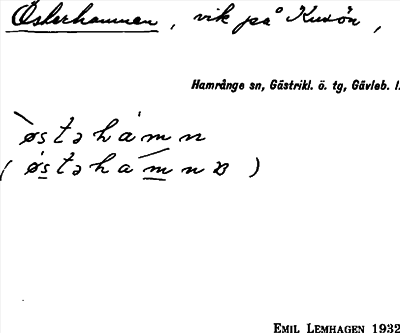 Österhamnen, vik på Kusön,
Hamrånge sn, Gästrikl. ö. tg, Gävleb. l.
̀østəhàmn
(østəhamnɒ)
EMIL LEMHAGEN 1932